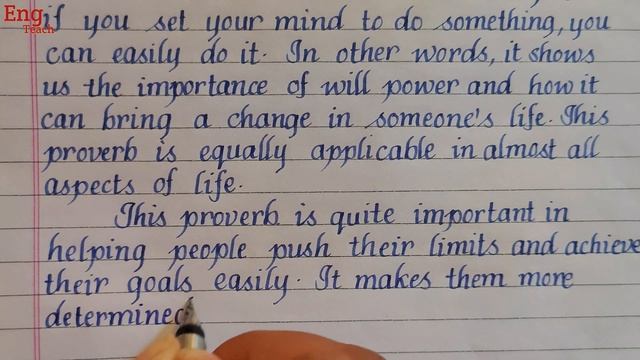 Eng
Teach
if you set your mind to do something, you
can easily do it. In other words, it shows
us the importance of will power and how it
can bring a change in someone's life. This
proverb is equally applicable in almost all
aspects of life.
This proverb is quite important in
helping people push their limits and achieve
their goals easily. It makes them more
determined